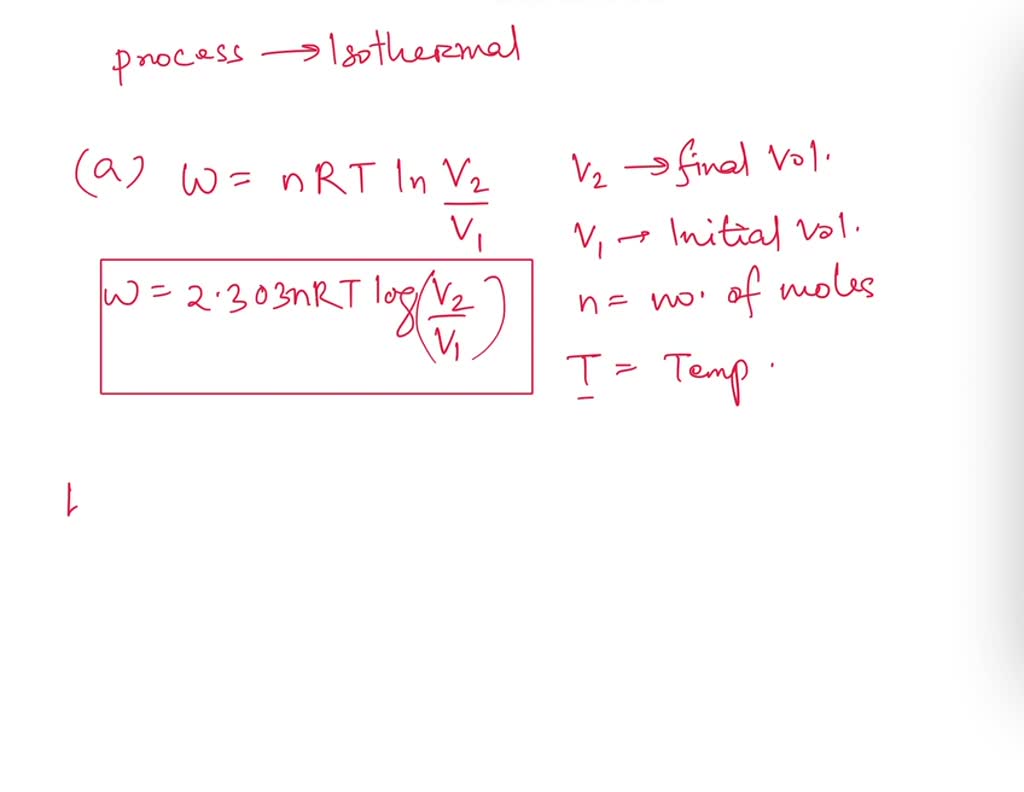 process → Isothermal
(a) W = nRT ln V₂/V₁
V₂ → final Vol.
V₁ → Initial Vol.
W = 2.303nRT log(V₂/V₁)
n = no. of moles
T = Temp.